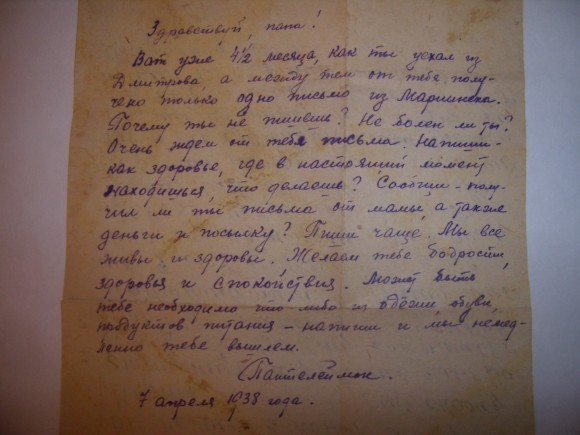 Здравствуй, папа!
Вот уже 4½ месяца, как ты уехал из
Дмитрова, а между тем от тебя полу-
чено только одно письмо из Мариинска.
Почему ты не пишешь? Не болен ли ты?
Очень ждем от тебя письма. Напиши-
как здоровье, где в настоящий момент
находишься, что делаешь? Сообщи - полу-
чил ли ты письма от мамы, а также
деньги и посылку? Пиши чаще. Мы все
живы и здоровы. Желаем тебе бодрости,
здоровья и спокойствия. Может быть
тебе необходимо что либо из одёжи, обуви,
продуктов питания - напиши и мы немед-
ленно тебе вышлем.
Пантелеймон.
7 апреля 1938 года.